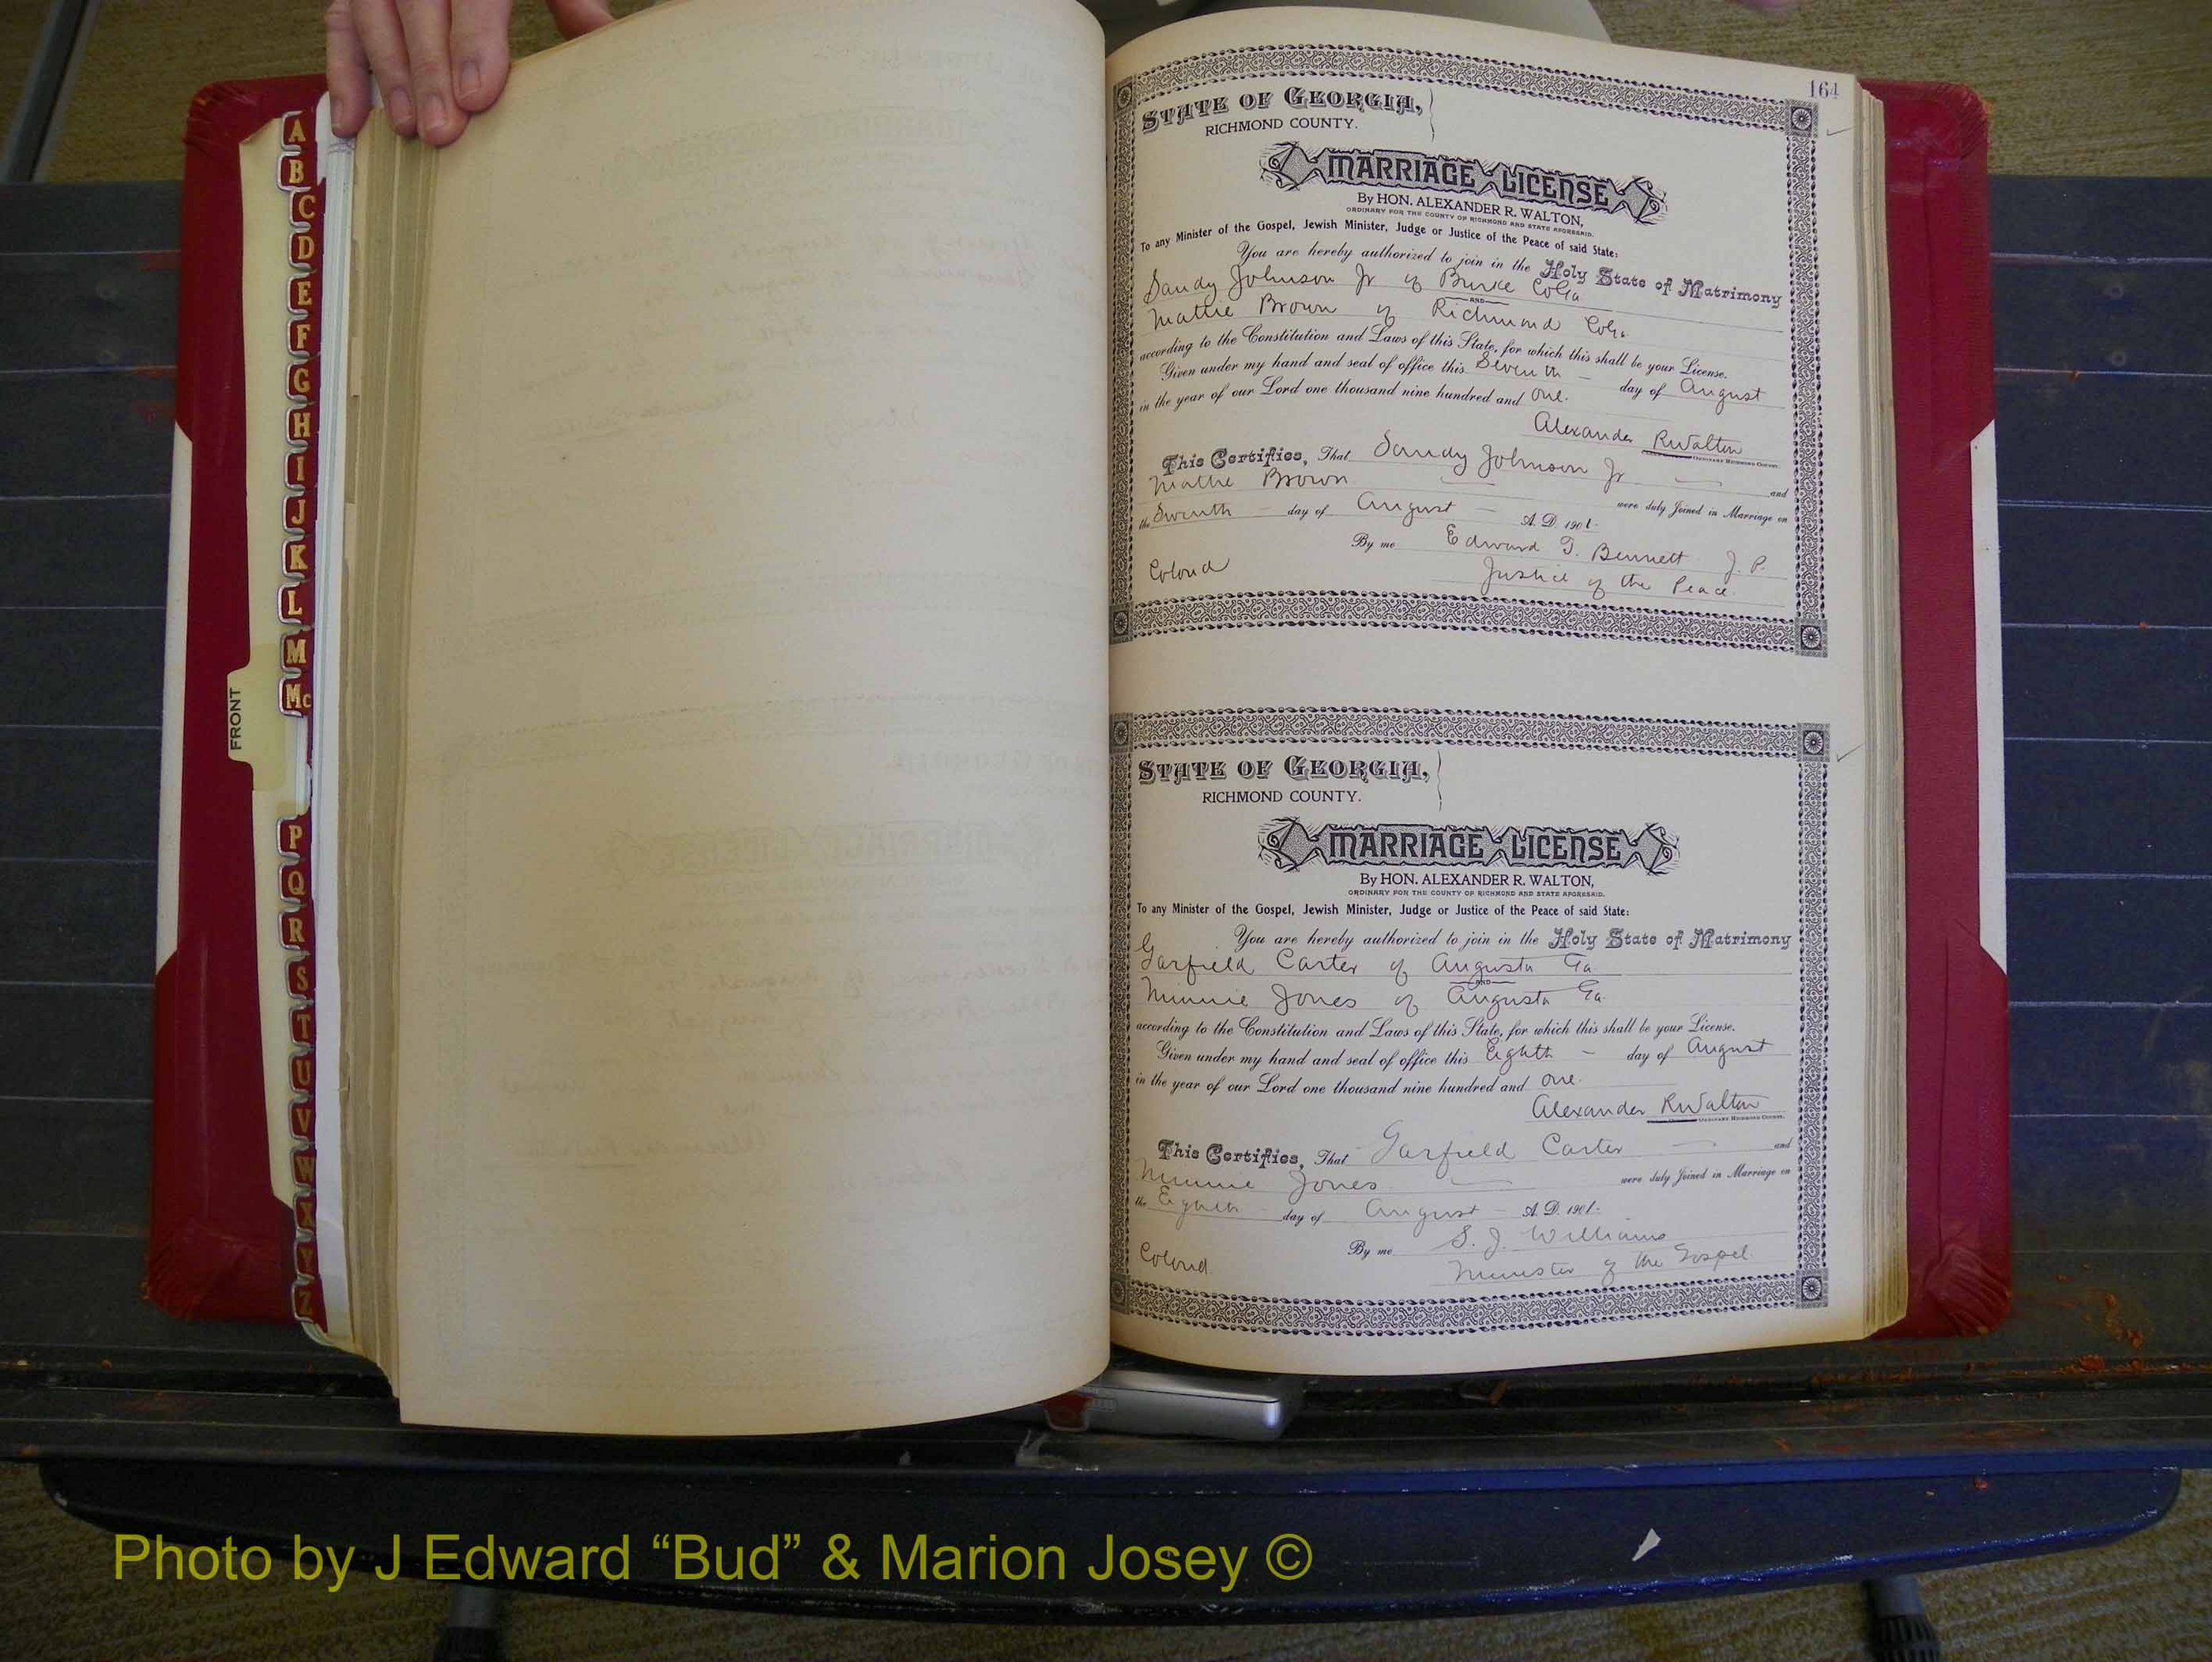 A
B
C
D
E
F
G
H
I
J
K
L
M
Mc
FRONT
P
Q
R
S
T
U
V
W
X
Y
Z
164
STATE OF GEORGIA,
RICHMOND COUNTY.
MARRIAGE LICENSE
By HON. ALEXANDER R. WALTON,
ORDINARY FOR THE COUNTY OF RICHMOND AND STATE AFORESAID.
To any Minister of the Gospel, Jewish Minister, Judge or Justice of the Peace of said State:
You are hereby authorized to join in the Holy State of Matrimony
Sandy Johnson Jr of Burke Co Ga
AND
Mattie Brown of Richmond Co Ga
according to the Constitution and Laws of this State, for which this shall be your License.
Given under my hand and seal of office this Seventh day of August
in the year of our Lord one thousand nine hundred and one.
Alexander R Walton
ORDINARY RICHMOND COUNTY.
This Certifies, That Sandy Johnson Jr and
Mattie Brown were duly Joined in Marriage on
the Seventh day of August A. D. 1901.
By me Edward T. Bennett J. P.
Colored Justice of the Peace.
STATE OF GEORGIA,
RICHMOND COUNTY.
MARRIAGE LICENSE
By HON. ALEXANDER R. WALTON,
ORDINARY FOR THE COUNTY OF RICHMOND AND STATE AFORESAID.
To any Minister of the Gospel, Jewish Minister, Judge or Justice of the Peace of said State:
You are hereby authorized to join in the Holy State of Matrimony
Garfield Carter of Augusta Ga
AND
Minnie Jones of Augusta Ga.
according to the Constitution and Laws of this State, for which this shall be your License.
Given under my hand and seal of office this Eighth day of August
in the year of our Lord one thousand nine hundred and one.
Alexander R Walton
ORDINARY RICHMOND COUNTY.
This Certifies, That Garfield Carter and
Minnie Jones were duly Joined in Marriage on
the Eighth day of August A. D. 1901.
By me S. J. Williams
Colored. Minister of the Gospel.
Photo by J Edward “Bud” & Marion Josey ©